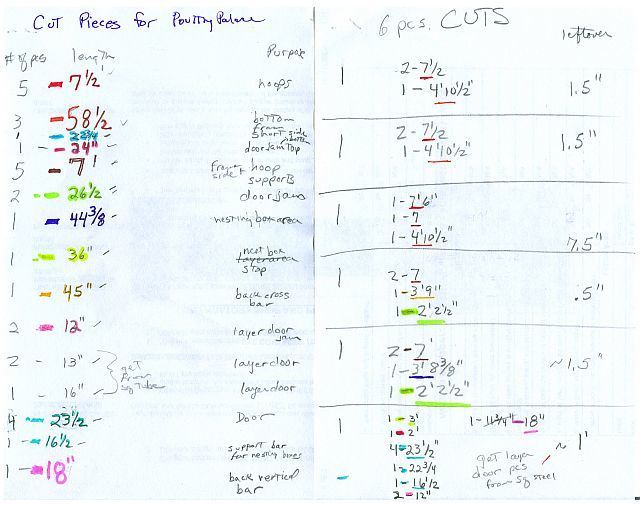 Cut Pieces for Poultry Palace
# of pcs length Purpose
5 - 7 1/2' hoops
3 - 58 1/2 bottom frame
1 - 22 3/4 short side bottom
1 - 24" door jam top
5 - 7' frame side & hoop supports
2 - 26 1/2 door jam
1 - 44 3/8 nesting box area
1 - 36" nest box layer area stop
1 - 45" back cross bar
2 - 12" layer door jam
2 - 13" layer door
get from sq tube
1 - 16" layer door
4 - 23 1/2 Door
1 - 16 1/2 support bar for nesting boxes
1 - 18" back vertical bar
6 pcs. CUTS leftover
1 2 - 7 1/2
1 - 4' 10 1/2" 1.5"
1 2 - 7 1/2
1 - 4' 10 1/2" 1.5"
1 1 - 7' 6"
1 - 7
1 - 4' 10 1/2" 7.5"
1 2 - 7
1 - 3' 9" .5"
1 - 2' 2 1/2"
1 2 - 7'
1 - 3' 8 3/8" ~1.5"
1 - 2' 2 1/2"
1 1 - 3' 1 - 18"
1 - 2'
4 - 23 1/2" ~ 1'
1 - 22 3/4
1 - 16 1/2
2 - 12"
get layer door pcs from sq steel